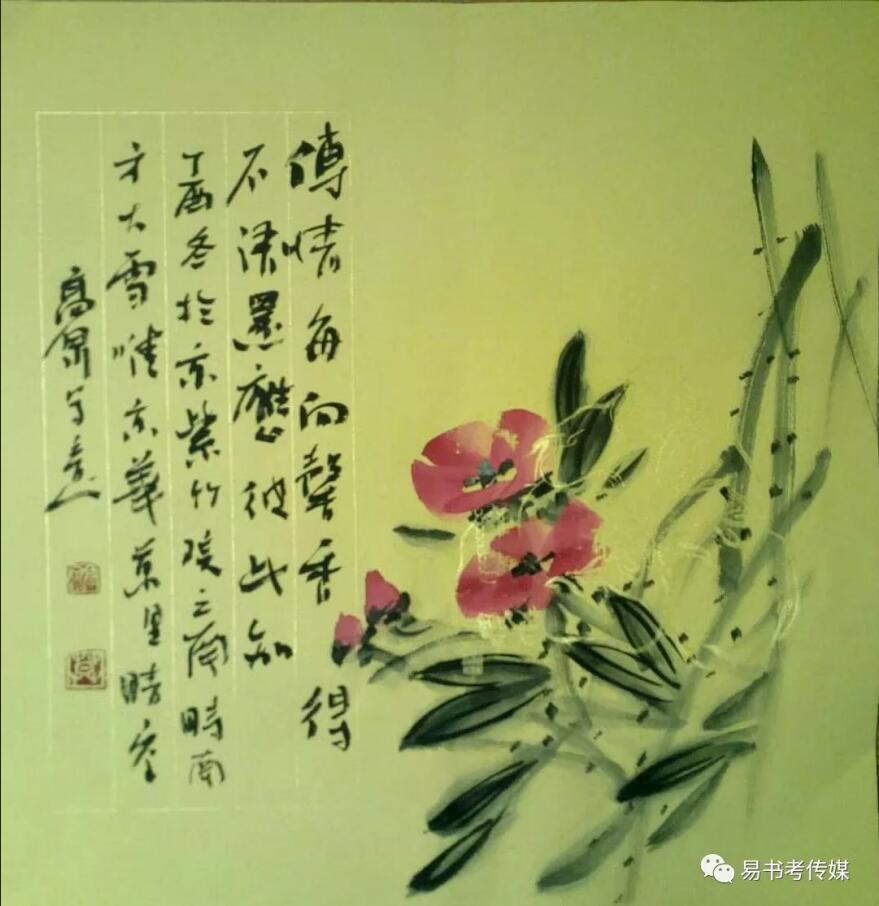 傳情每向馨香得
不語還應彼此知
丁酉冬於京紫竹院之南時南
方大雪唯京華萬里晴空
高 写意
易书考传媒